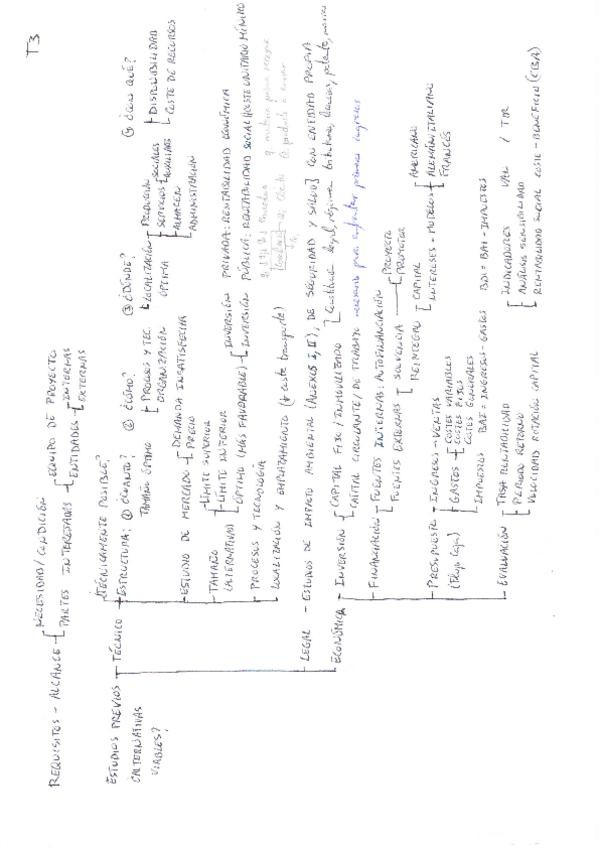 T3
REQUISITOS - ALCANCE
NECESIDAD/CONDICIÓN
PARTES INTERESADAS
EQUIPO DE PROYECTO
ENTIDADES
INTERNAS
EXTERNAS
ESTUDIOS PREVIOS
¿ALTERNATIVAS
VIABLES?
TÉCNICO
¿TÉCNICAMENTE POSIBLE?
ESTRUCTURA: ① ¿CUANTO? ② ¿CÓMO? ③ ¿DÓNDE? ④ ¿CON QUÉ?
TAMAÑO ÓPTIMO
PROCESOS Y TEC.
ORGANIZACIÓN
LOCALIZACIÓN
ÓPTIMA
PRODUCCIÓN
SERVICIOS
SOCIALES
AUXILIARES
ALMACEN
ADMINISTRACIÓN
DISPONIBILIDAD
COSTE DE RECURSOS
ESTUDIO DE MERCADO
DEMANDA INSATISFECHA
PRECIO
TAMAÑO
(ALTERNATIVAS)
LÍMITE SUPERIOR
LÍMITE INFERIOR
ÓPTIMO (MÁS FAVORABLE)
INVERSIÓN PRIVADA: RENTABILIDAD ECONÓMICA
INVERSIÓN PÚBLICA: RENTABILIDAD SOCIAL (COSTE UNITARIO MÍNIMO
PROCESOS Y TECNOLOGÍA
LOCALIZACIÓN Y EMPLAZAMIENTO (↓ coste transporte)
LEGAL - ESTUDIOS DE IMPACTO AMBIENTAL (ANEXOS I, II), DE SEGURIDAD Y SALUD] CON ENTIDAD PROPIA
Constitución legal, régimen tributario, licencias, patentes, marcas
ECONÓMICA
INVERSIÓN
CAPITAL FIJO / INMOVILIZADO
CAPITAL CIRCULANTE / DE TRABAJO necesario para enfrentar primeros ingresos
FINANCIACIÓN
FUENTES INTERNAS: AUTOFINANCIACIÓN
FUENTES EXTERNAS
SOLVENCIA
PROYECTO
PROMOTOR
REINTEGRO
CAPITAL
INTERESES - MODELOS
AMERICANO
ALEMÁN/ITALIANO
FRANCÉS
PRESUPUESTO
(Flujo Caja)
INGRESOS - VENTAS
GASTOS
COSTES VARIABLES
COSTES FIJOS
COSTES GENERALES
IMPUESTOS BAI = INGRESOS - GASTOS BDI = BAI - IMPUESTOS
EVALUACIÓN
TASA RENTABILIDAD
PERIODO RETORNO
VELOCIDAD ROTACIÓN CAPITAL
INDICADORES VAN / TIR
ANÁLISIS SENSIBILIDAD
RENTABILIDAD SOCIAL COSTE - BENEFICIO (CBA)